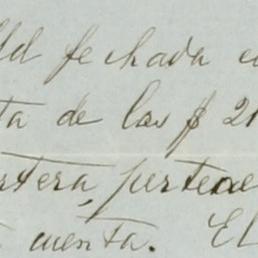 Ud fechada e
ta de las $ 21
rtera, pertene
cuenta. El